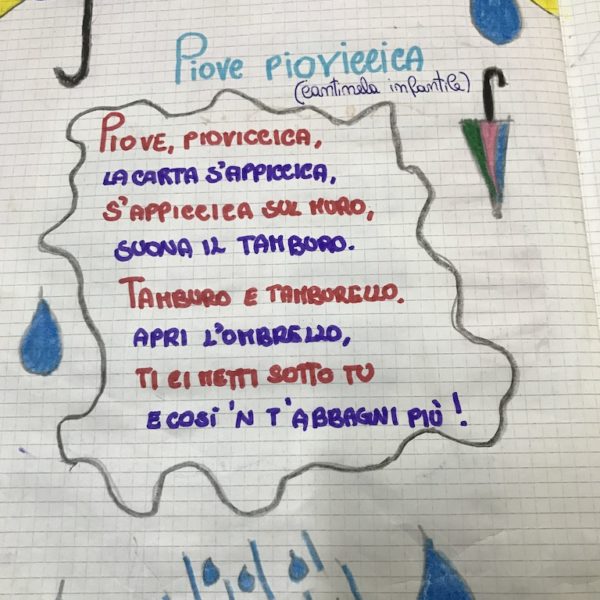 Piove pioviccica
(cantinela infantile)
PIOVE, PIOVICCICA,
LA CARTA S'APPICCICA,
S'APPICCICA SUL MURO,
SUONA IL TAMBURO.
TAMBURO E TAMBURELLO.
APRI L'OMBRELLO,
TI CI METTI SOTTO TU
E COSI 'N T'ABBAGNI PIÙ!